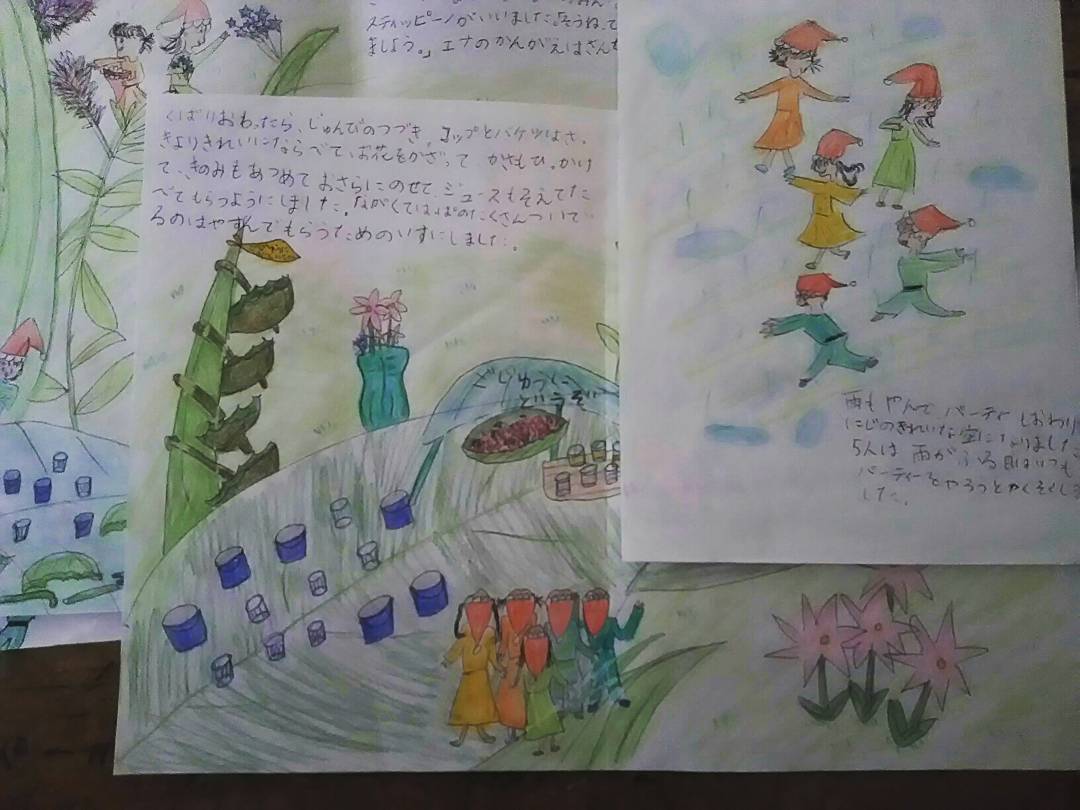 スティッピーノがいいました。「そうね、て
ましょう。」エナのかんがえはさんせ
くばりおわったら、じゅんびのつづき。コップとバケツはさ、
きよりきれいにならべて、お花をかざって かさもひっかけ
て、きのみもあつめて おさらにのせて、ジュースもそえてた
べてもらうようにしました。ながくてはっぱのたくさんついて
るのはやすんでもらうためのいすにしました。
ごじゆうに
どうぞ
雨もやんで パーティーもおわり
にじのきれいな空になりました。
5人は 雨がふる時はいつも
パーティーをやろうとやくそくしま
した。